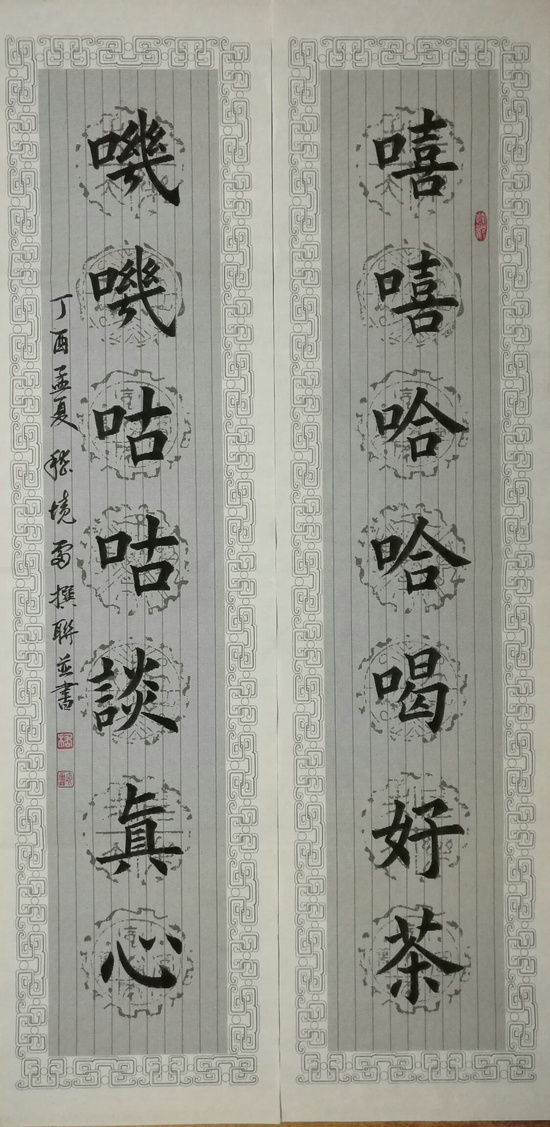 嘻嘻哈哈喝好茶
嘰嘰咕咕談真心
丁酉孟夏 境雷撰聯並書